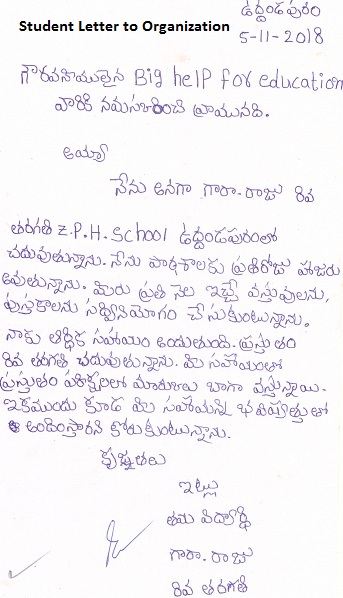 ఉద్దండపురం
Student Letter to Organization
5-11-2018
గౌరవనీయులైన Big help for education
వారికి నమస్కరించి వ్రాయునది.
అయ్యా
నేను అనగా గారా.రాజు 8వ
తరగతి Z.P.H.School ఉద్దండపురంలో
చదువుతున్నాను. నేను పాఠశాలకు ప్రతిరోజు హాజరు
అవుతున్నాను. మీరు ప్రతి నెల ఇచ్చే వస్తువులను,
పుస్తకాలను సద్వినియోగం చేసుకుంటున్నాను.
నాకు ఆర్థిక సహాయం అందుతుంది. ప్రస్తుతం
8వ తరగతి చదువుతున్నాను. మీ సహాయంతో
ప్రస్తుతం పరీక్షలలో మార్కులు బాగా వస్తున్నాయి.
ఇకముందు కూడ మీ సహాయాన్ని భవిష్యత్తులో
అందిస్తారని కోరుకుంటున్నాను.
కృతజ్ఞతలు
ఇట్లు
తమ విద్యార్థి
గారా.రాజు
8వ తరగతి